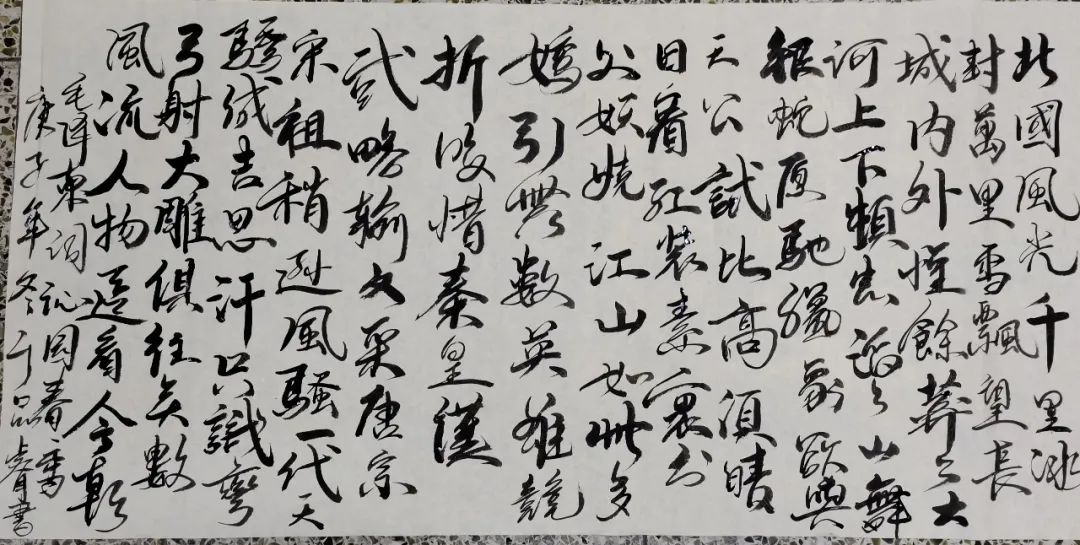 北國風光千里冰
封萬里雪飄望長
城内外惟餘莽々大
河上下頓失滔々山舞
銀蛇原馳臘象欲與
天公試比高須晴
日看紅裝素裹分
外妖嬈江山如此多
嬌引無數英雄競
折腰惜秦皇漢
武略輸文采唐宗
宋祖稍遜風騷一代天
驕成吉思汗只識彎
弓射大雕俱往矣數
風流人物還看今朝
毛泽東詞沁園春雪
庚子年冬睿書